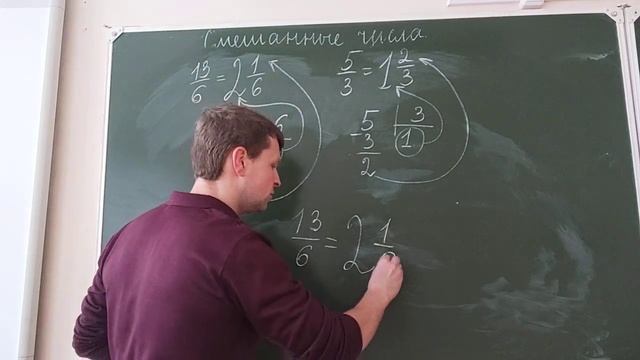 Смешанные числа.
13/6 = 2 1/6
5/3 = 1 2/3
6
5 | 3
- 3 | 1
2
13/6 = 2 1/